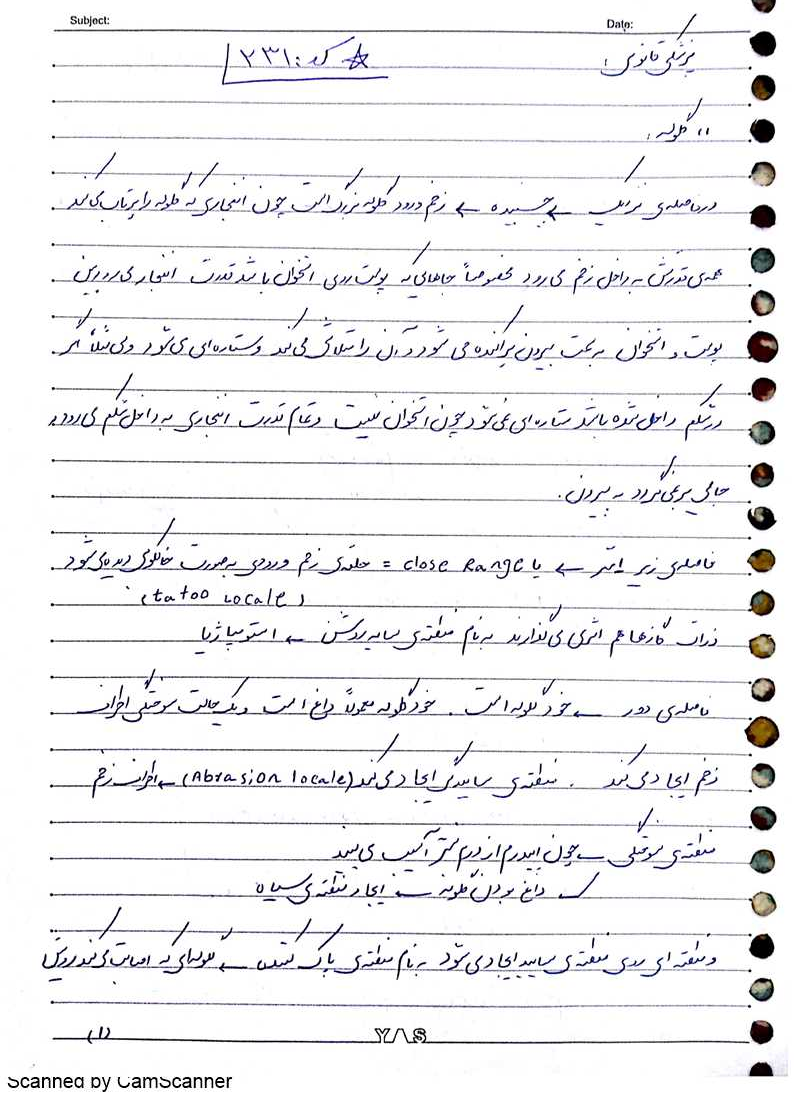 Subject:
Date:
پزشکی قانونی:
کد: ۲۳۱
۱) گلوله:
در فاصله‌ی نزدیک ← چسبیده ← زخم ورود گلوله بزرگ است چون انفجاری که گلوله را پرتاب می‌کند
همه‌ی قدرتش به داخل زخم می‌رود مخصوصاً جاهایی که پوست روی استخوان باشد قدرت انفجار می‌رود بین
پوست و استخوان به سمت بیرون پراکنده می شود و آن را متلاشی می‌کند و ستاره‌ای می‌شود ولی مثلاً اگر
در شکم داخل شده باشد ستاره‌ای نمی‌شود چون استخوان نیست و تمام قدرت انفجاری به داخل شکم می‌رود و
جایی برنمی‌گردد به بیرون.
فاصله‌ی زیر ۱متر ← یا close Range = حلقه‌ی زخم ورودی به صورت خالکوبی دیده می‌شود
(tatoo Locale)
ذرات گازها هم اثری می‌گذارند به نام منطقه‌ی سایه روشن ←
فاصله‌ی دور ← خود گلوله است. خود گلوله معمولاً داغ است و یک حالت سوختگی اطراف
زخم ایجاد می‌کند. منطقه‌ی ساییدگی ایجاد می‌کند (Abrasion locale) ← اطراف زخم
منطقه‌ی سوختگی ← چون اپیدرم از درم بیشتر آسیب می‌بیند
← داغ بودن گلوله ← ایجاد منطقه‌ی سیاه
و منطقه ای روی منطقه‌ی ساییده ایجاد می‌شود به نام منطقه‌ی پاک کننده ← گلوله‌ای که اصابت می‌کند رویش
(۱)
YAS
Scanned by CamScanner